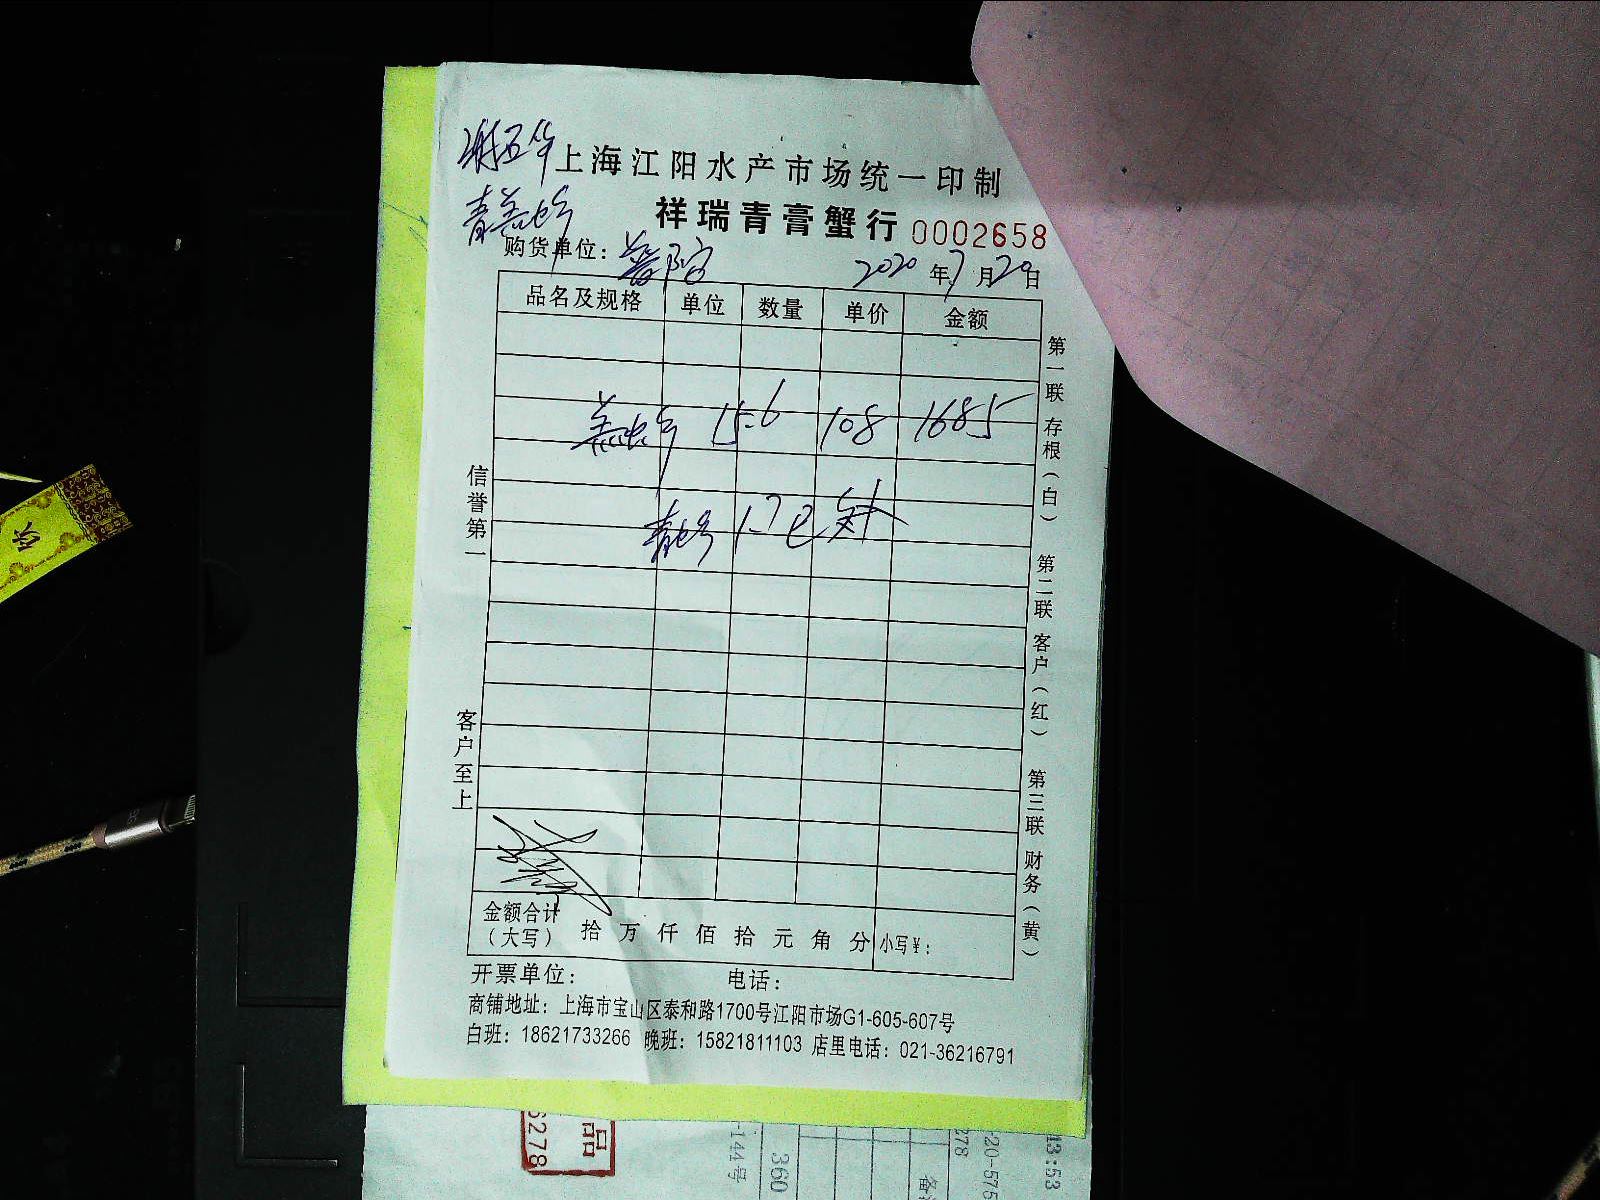 上海江阳水产市场统一印制
祥瑞青膏蟹行 0002658
购货单位：
2020年7月20日
品名及规格 单位 数量 单价 金额
15.6 108 1685
1.7
金额合计（大写） 拾 万 仟 佰 拾 元 角 分 小写￥：
开票单位： 电话：
商铺地址：上海市宝山区泰和路1700号江阳市场G1-605-607号
白班：18621733266 晚班：15821811103 店里电话：021-36216791
信誉第一
客户至上
第一联 存根（白）
第二联 客户（红）
第三联 财务（黄）
品
6278
-144号
360
备
278
-20-575
13:53